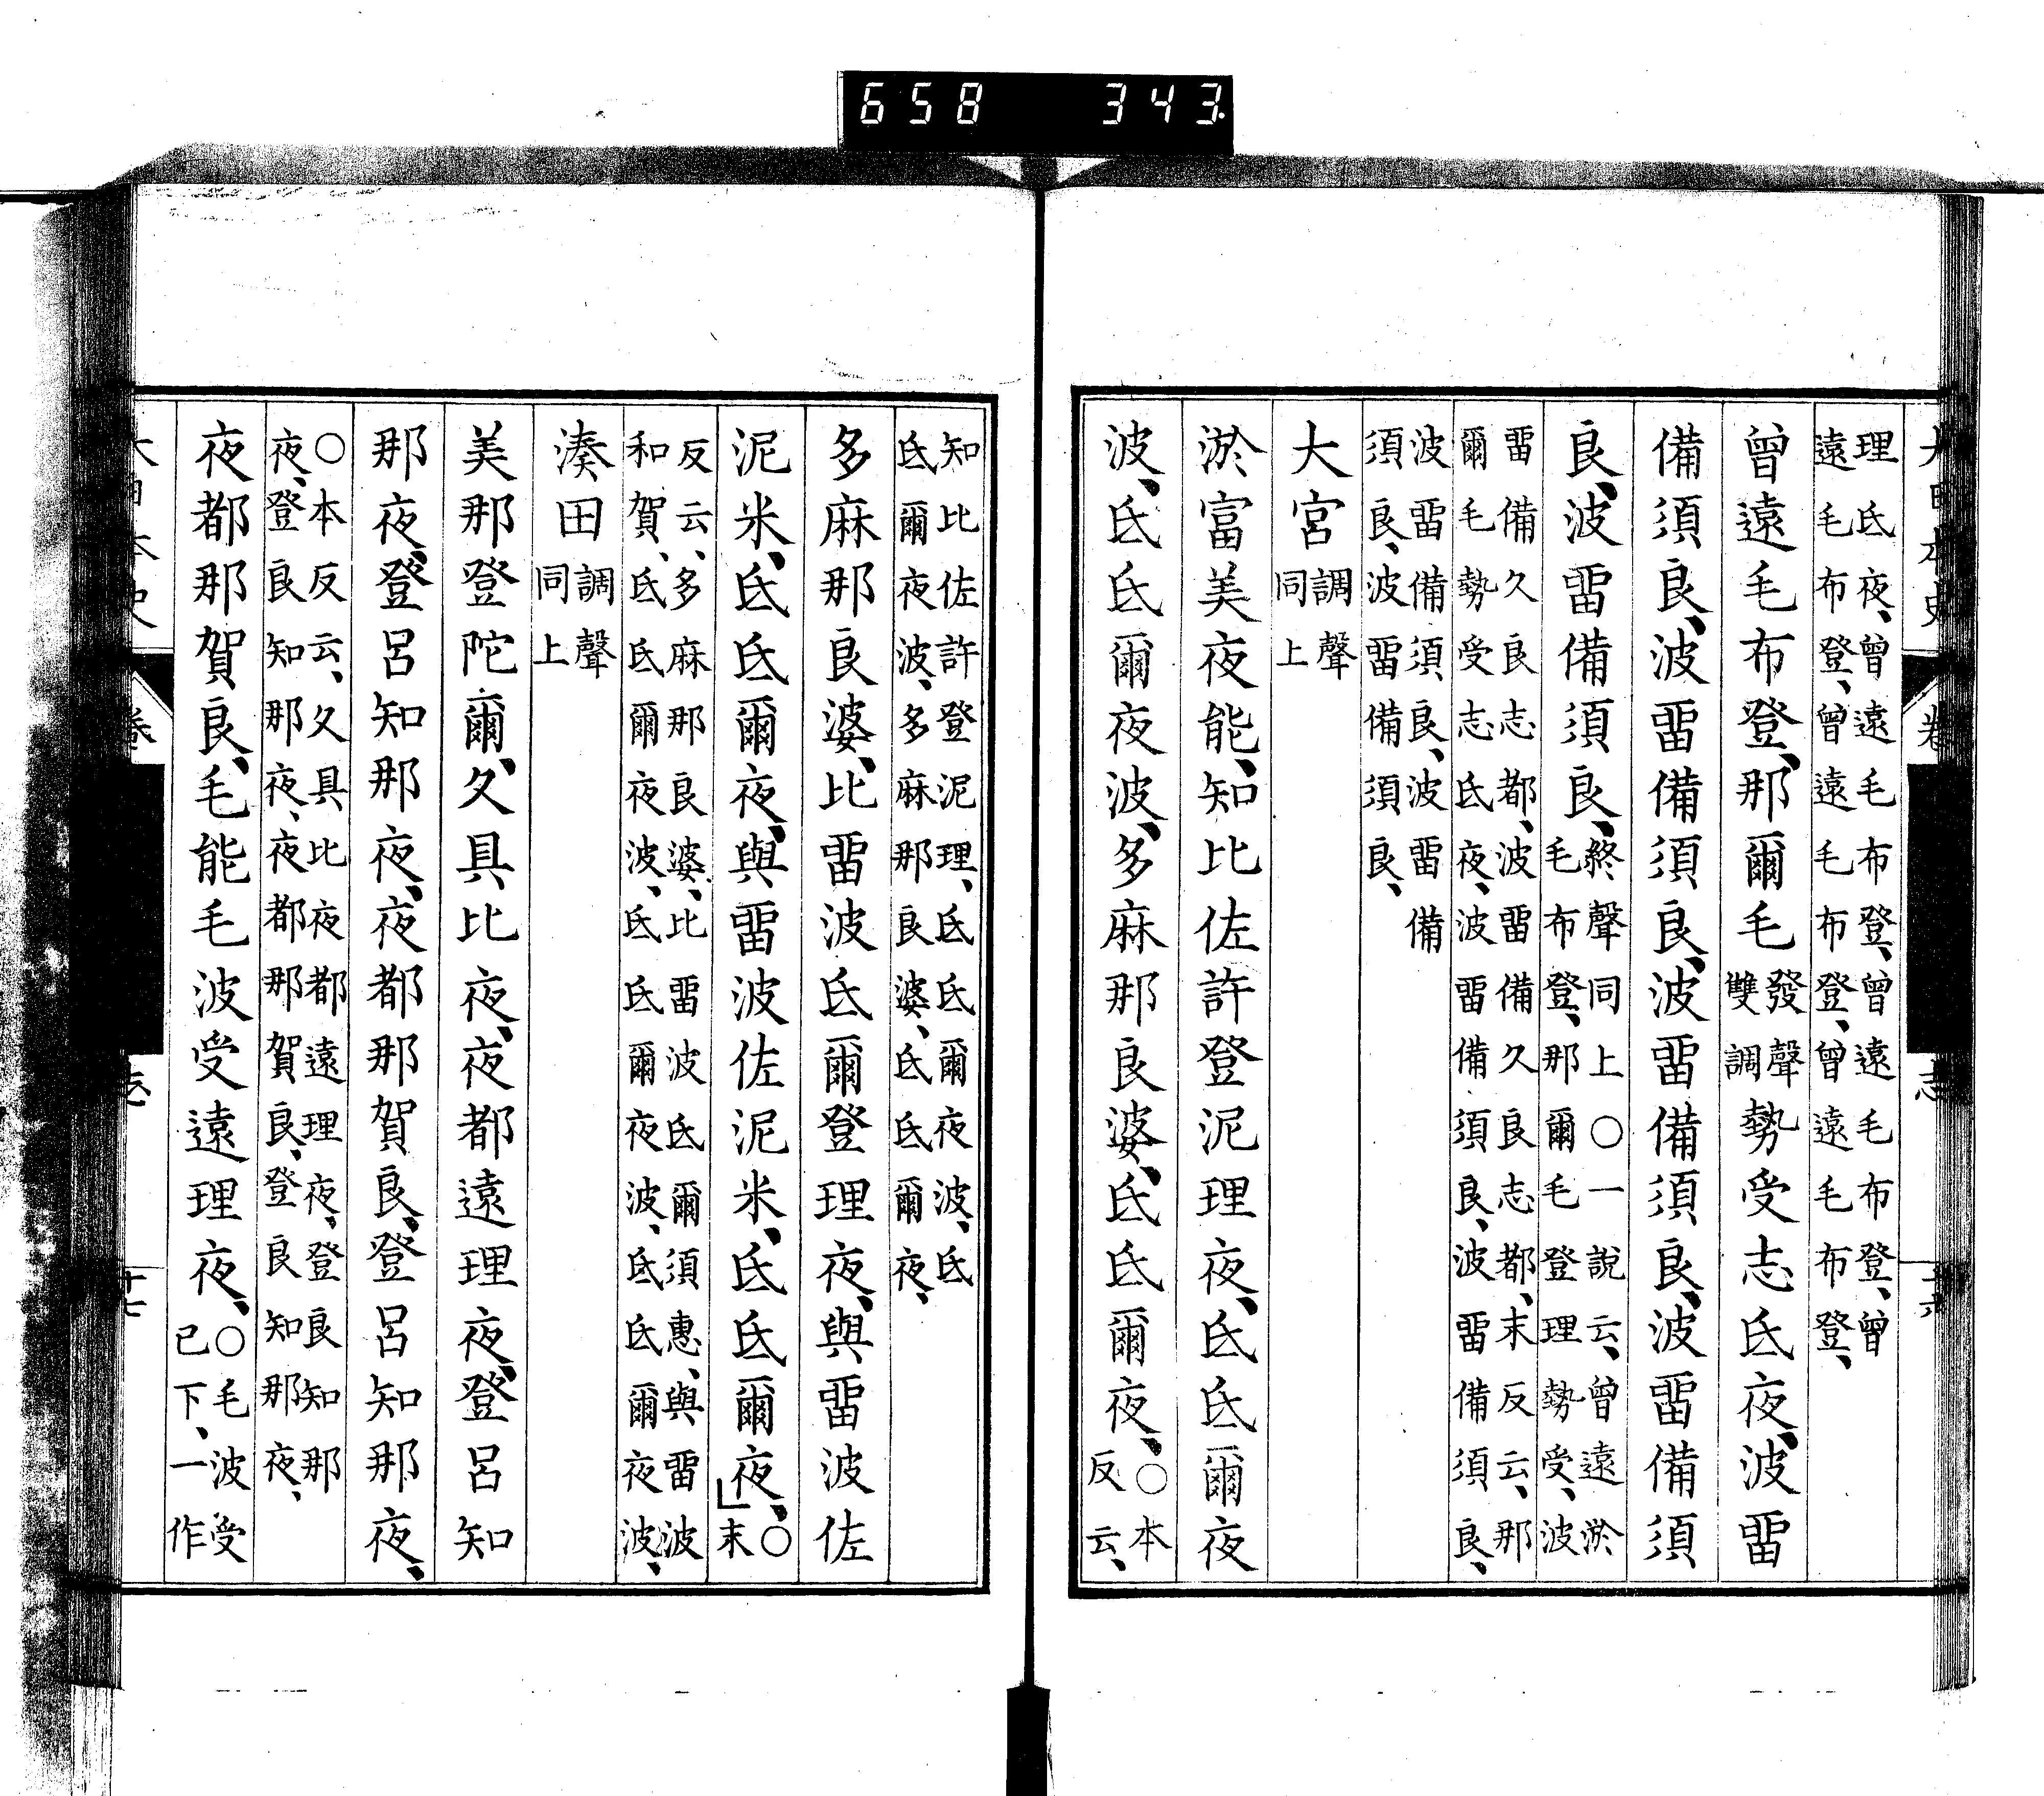 658 343
理氐夜、曾遠毛布登、曾遠毛布登、曾
遠毛布登、曾遠毛布登、曾遠毛布登、
曾遠毛布登、那爾毛
發聲
雙調
勢受志氐夜、波畱
備須良、波畱備須良、波畱備須良、波畱備須
良、波畱備須良、
終聲同上○一說云、曾遠淤
毛布登、那爾毛登理勢受、波
畱備久良志都、波畱備久良志都、末反云、那
爾毛勢受志氐夜、波畱備須良、波畱備須良、
波畱備須良、波畱備
須良、波畱備須良、
大宮
調聲
同上
淤富美夜能、知比佐許登泥理夜、氐氐爾夜
波、氐氐爾夜波、多麻那良婆、氐氐爾夜、
○本
反云、
知比佐許登泥理、氐氐爾夜波、氐
氐爾夜波、多麻那良婆、氐氐爾夜、
多麻那良婆、比畱波氐爾登理夜、與畱波佐
泥米、氐氐爾夜、與畱波佐泥米、氐氐爾夜、
○
末
反云、多麻那良婆、比畱波氐爾須惠、與畱波
和賀、氐氐爾夜波、氐氐爾夜波、氐氐爾夜波、
湊田
調聲
同上
美那登陀爾、久具比夜、夜都遠理夜、登呂知
那夜、登呂知那夜、夜都那賀良、登呂知那夜、
○本反云、久具比夜都遠理夜、登良知那
夜、登良知那夜、夜都那賀良、登良知那夜、
夜都那賀良、毛能毛波受遠理夜、
○毛波受
已下、一作